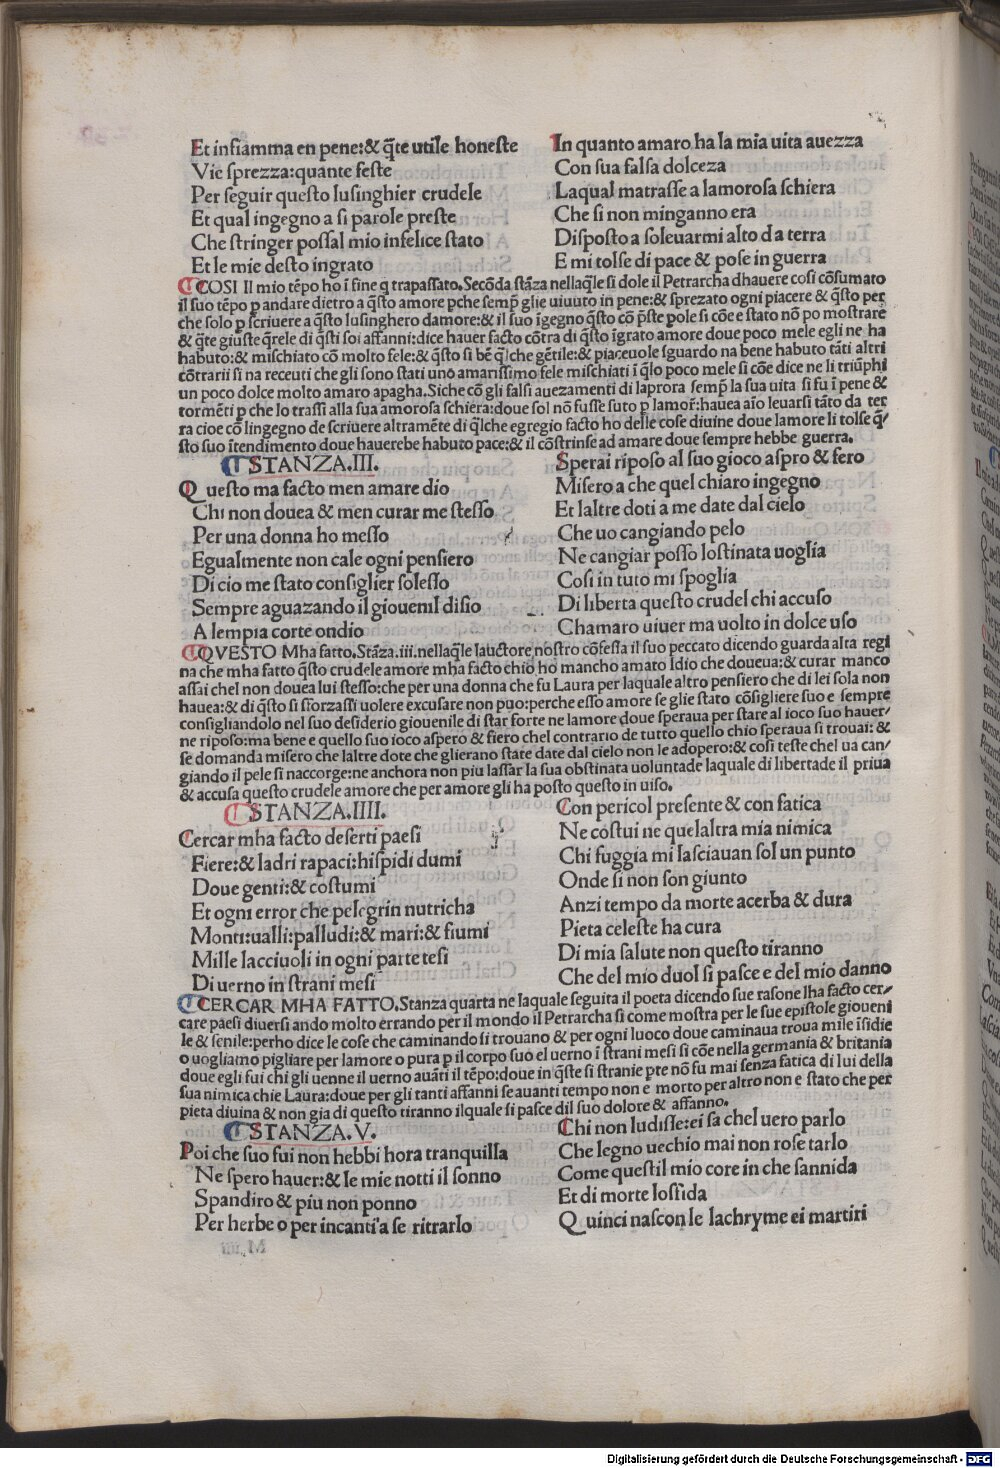 Et infiamma en pene:& q̃te utile honeste
Vie sprezza:quante feste
Per seguir questo lusinghier crudele
Et qual ingegno a si parole preste
Che stringer possal mio infelice stato
Et le mie desto ingrato
In quanto amaro ha la mia uita auezza
Con sua falsa dolceza
Laqual matrasse a lamorosa schiera
Che si non minganno era
Disposto a soleuarmi alto da terra
E mi tolse di pace & pose in guerra
COSI Il mio tẽpo ho ĩ fine q trapassato.Secõda stãza nellaq̃le si dole il Petrarcha dhauere cosi cõsumato
il suo tẽpo p andare dietro a q̃sto amore pche semp̃ glie uiuuto in pene:& sprezato ogni piacere & q̃sto per
che solo p scriuere a q̃sto lusinghero damore:& il suo ĩgegno q̃sto cõ p̃ste pole si cõe e stato nõ po mostrare
& q̃te giuste q̃rele di q̃sti soi affanni:dice hauer facto cõtra di q̃sto ĩgrato amore doue poco mele egli ne ha
habuto:& mischiato cõ molto fele:& q̃sto si bẽ q̃lche gẽtile:& piaceuole sguardo na bene habuto tãti altri
cõtrarii si na receuti che gli sono stati uno amarissimo fele mischiati ĩ q̃lo poco mele si cõe dice ne li triũphi
un poco dolce molto amaro apagha.Siche cõ gli falsi auezamenti di laprora semp̃ la sua uita si fu ĩ pene &
tormẽti p che lo trassi alla sua amorosa schiera:doue sol nõ fusse suto p lamor̃:hauea aĩo leuarsi tãto da ter
ra cioe cõ lingegno de scriuere altramẽte di q̃lche egregio facto ho delle cose diuine doue lamore li tolse q̃/
sto suo ĩtendimento doue hauerebe habuto pace:& il cõstrinse ad amare doue sempre hebbe guerra.
STANZA.III.
Questo ma facto men amare dio
Chi non douea & men curar me stesso
Per una donna ho messo
Egualmente non cale ogni pensiero
Di cio me stato consiglier solesso
Sempre aguazando il giouenil disio
A lempia corte ondio
Sperai riposo al suo gioco aspro & fero
Misero a che quel chiaro ingegno
Et laltre doti a me date dal cielo
Che uo cangiando pelo
Ne cangiar posso lostinata uoglia
Cosi in tuto mi spoglia
Di liberta questo crudel chi accuso
Chamaro uiuer ma uolto in dolce uso
QVESTO Mha fatto.Stãza.iii.nellaq̃le lauctore nostro cõfessa il suo peccato dicendo guarda alta regi
na che mha fatto q̃sto crudele amore mha facto chio ho mancho amato Idio che doueua:& curar manco
assai chel non douea lui stesso:che per una donna che fu Laura per laquale altro pensiero che di lei sola non
hauea:& di q̃sto si sforzassi uolere excusare non puo:perche esso amore se glie stato cõsigliere suo e sempre
consigliandolo nel suo desiderio giouenile di star forte ne lamore doue speraua per stare al ioco suo hauer/
ne riposo:ma bene e quello suo ioco aspero & fiero chel contrario de tutto quello chio speraua si trouai:&
se domanda misero che laltre dote che glierano state date dal cielo non le adopero:& cosi teste chel ua can/
giando il pele si naccorge:ne anchora non piu lassar la sua obstinata uoluntade laquale di libertade il priua
& accusa questo crudele amore che per amore gli ha posto questo in uiso.
STANZA.IIII.
Cercar mha facto deserti paesi
Fiere:& ladri rapaci:hispidi dumi
Doue genti:& costumi
Et ogni error che pelegrin nutricha
Monti:ualli:palludi:& mari:& fiumi
Mille lacciuoli in ogni parte tesi
Di uerno in strani mesi
Con pericol presente & con fatica
Ne costui ne quelaltra mia nimica
Chi fuggia mi lasciauan sol un punto
Onde si non son giunto
Anzi tempo da morte acerba & dura
Pieta celeste ha cura
Di mia salute non questo tiranno
Che del mio duol si pasce e del mio danno
CERCAR MHA FATTO.Stanza quarta ne laquale seguita il poeta dicendo sue rasone lha facto cer/
care paesi diuersi ando molto errando per il mondo il Petrarcha si come mostra per le sue epistole gioueni
le & senile:perho dice le cose che caminando si trouano & per ogni luoco doue caminaua troua mile ĩsidie
o uogliamo pigliare per lamore o pura p il corpo suo el uerno ĩ strani mesi si cõe nella germania & britania
doue egli fui chi gli uenne il uerno auãti il tẽpo:doue in q̃ste si stranie pte nõ fu mai senza fatica di lui della
sua nimica chie Laura:doue per gli tanti affanni se auanti tempo non e morto per altro non e stato che per
pieta diuina & non gia di questo tiranno ilquale si pasce dil suo dolore & affanno.
STANZA.V.
Poi che suo fui non hebbi hora tranquilla
Ne spero hauer:& le mie notti il sonno
Spandiro & piu non ponno
Per herbe o per incanti a se ritrarlo
Chi non ludisse:ei sa chel uero parlo
Che legno uechio mai non rose tarlo
Come questil mio core in che sannida
Et di morte lo sfida
Quinci nascon le lachryme ei martiri
Digitalisierung gefördert durch die Deutsche Forschungsgemeinschaft - DFG